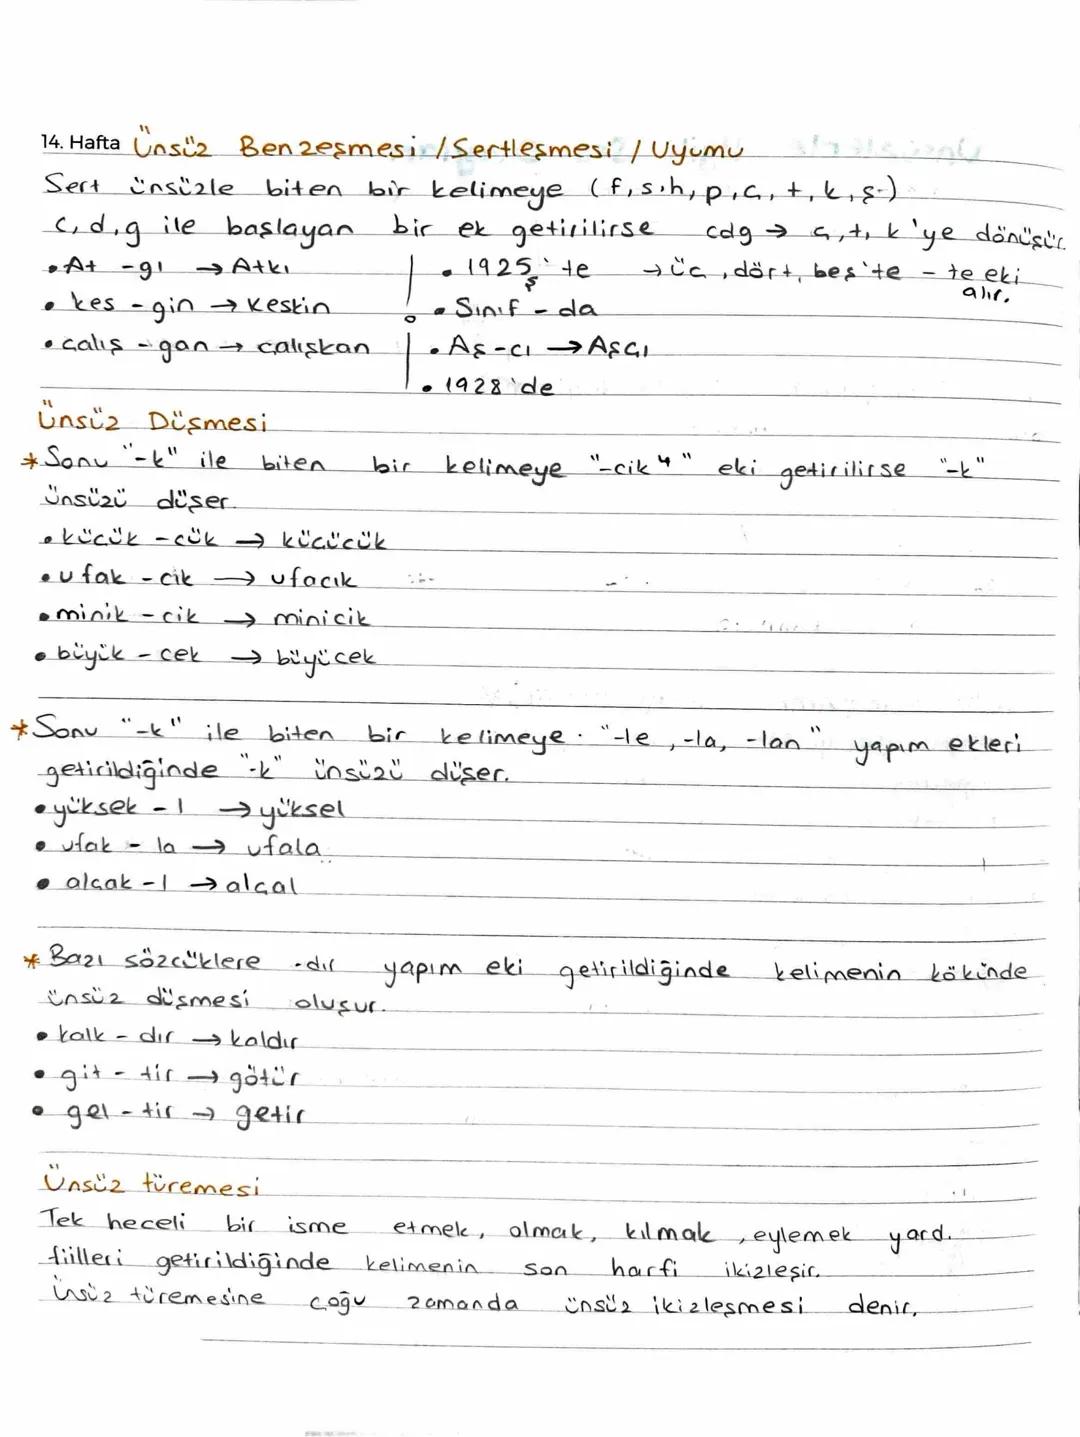 14. Hafta Ünsüz Benzeşmesi / Sertleşmesi / Uyumu
Sert ünsüzle biten bir kelimeye (f, s, h, p, ç, t, k, ş)
c, d, g ile başlayan bir ek getirilirse cdg → ç, t, k'ye dönüşür.
• At -gı → Atkı
• kes - gin → keskin
• çalış - gan → çalışkan
• 1925'te → üç, dört, beş'te - te eki
ş
alır.
• Sınıf - da
• Aş - cı → Aşçı
• 1928'de
Ünsüz Düşmesi
* Sonu "-k" ile biten bir kelimeye "-cik⁴" eki getirilirse "-k"
ünsüzü düşer.
• küçük - cük → küçücük
• ufak - cik → ufacık
• minik - cik → minicik
• büyük - cek → büyücek
* Sonu "-k" ile biten bir kelimeye "-le, -la, -lan" yapım ekleri
getirildiğinde "-k" ünsüzü düşer.
• yüksek - l → yüksel
• ufak - la → ufala
• alçak - l → alçal
* Bazı sözcüklere -dır yapım eki getirildiğinde kelimenin kökünde
ünsüz düşmesi oluşur.
• kalk - dır → kaldır
• git - tir → götür
• gel - tir → getir
Ünsüz türemesi
Tek heceli bir isme etmek, olmak, kılmak, eylemek yard.
fiilleri getirildiğinde kelimenin son harfi ikizleşir.
Ünsüz türemesine çoğu zamanda ünsüz ikizleşmesi denir.